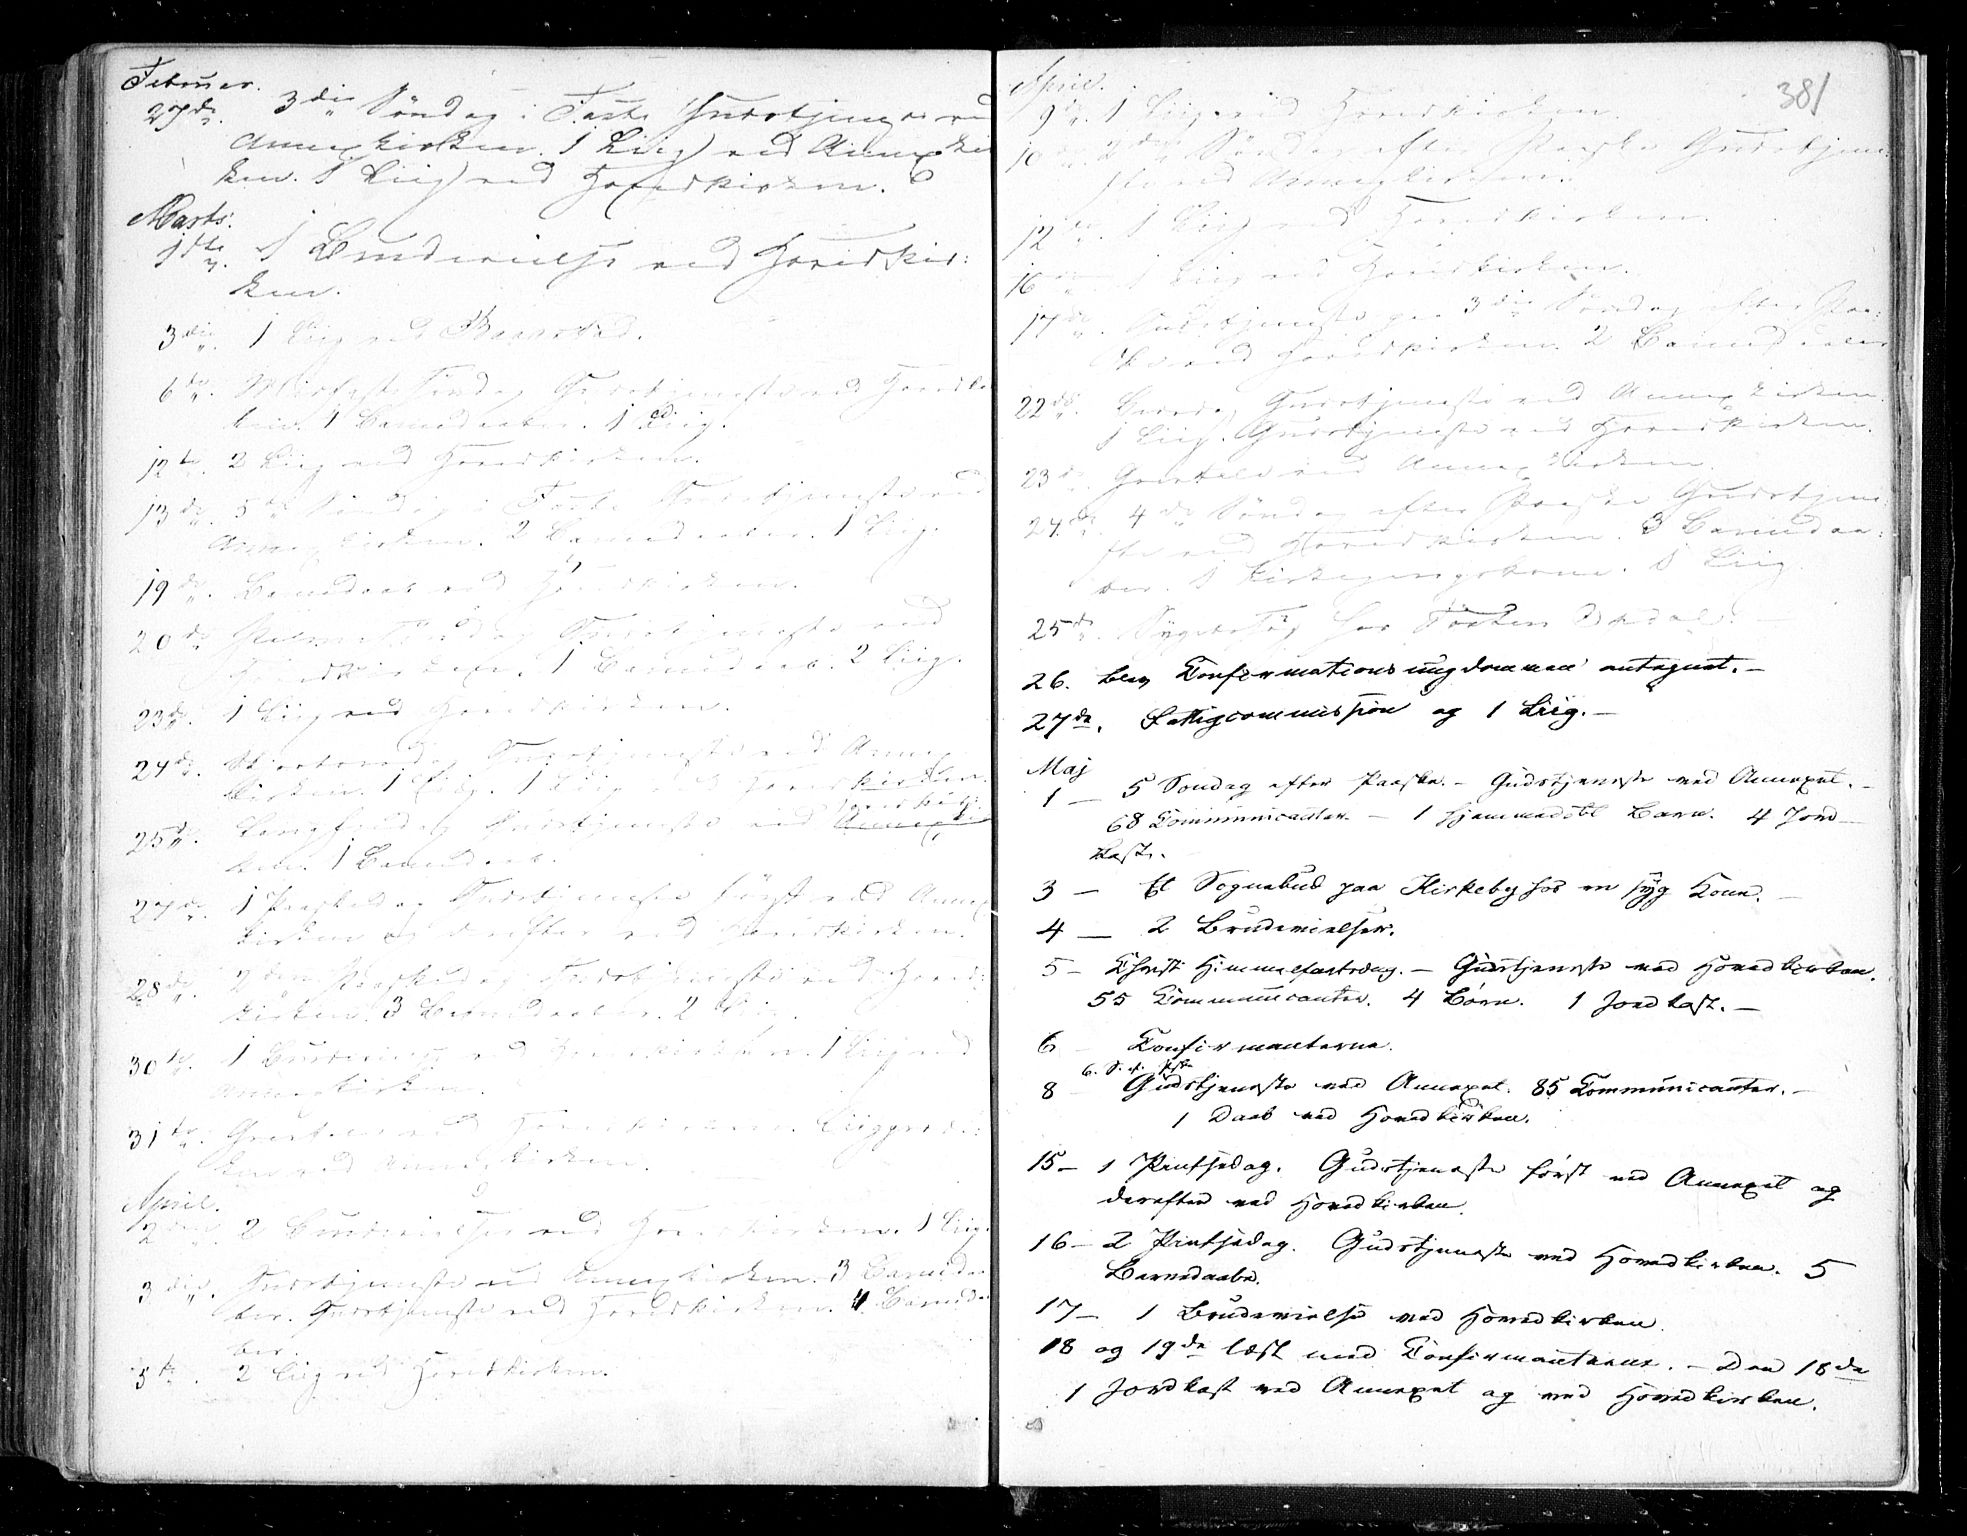 Februar.
27de. 3die Søndag i Faste Gudstjeneste ved
Annexkirken. 1 Liig ved Annexkir
ken. 1 Liig ved Hovedkirken.
Marts.
1ste. 1 Brudevielse ved Hovedkir:
ken.
3die. 1 Liig ved
6te. Midfaste Søndag Gudstjeneste ved Hovedkir
ken. 1 Barnedaaber. 1 Liig.
12te. 2 Liig ved Hovedkirken.
13de. 5te Søndag i Faste Gudstjeneste ved
Annexkirken. 2 Barnedaaber. 1 Liig.
19de. Barnedaab ved Hovedkirken.
20de Palme Søndag Gudstjeneste ved
Hovedkirken. 1 Barnedaab. 2 Liig.
23de. 1 Liig ved Hovedkirken.
24de. Skjertorsdag Gudstjeneste ved Annex
kirken. 1 Liig. 1 Liig ved Hovedkirken.
Hovedkir
25de. Langfredag Gudstjeneste ved Annexkir
ken. 1 Barnedaab.
27de. 1 Paaskedag Gudstjeneste først ved Annex
kirken og derefter ved Hovedkirken.
28de. 2den Paaskedag Gudstjeneste ved Hoved:
kirken. 3 Barnedaaber. 2 Liig.
30te. 1 Brudevielse ved Hovedkirken. 1 Liig ved
Annexkirken.
31te. ved Hovedkirken.
ken ved Annexkirken.
April.
2den. 2 Brudevielser ved Hovedkirken. 1 Liig.
3die. Gudstjeneste ved Annexkirken. 3 Barnedaa
ber. Gudstjeneste ved Hovedkirken. 4 Barnedaa
ber.
5te. 2 Liig ved Hovedkirken.
April.
381
9de. 1 Liig ved Hovedkirken.
10de. 2den Søndag efter Paaske Gudstjene:
ste ved Annexkirken.
12te. 1 Liig ved Hovedkirken.
16de. 1 Liig ved Hovedkirken.
17de. Gudstjeneste paa 3die Søndag efter Paa:
ske ved Hovedkirken. 2 Barnedaaber
22de. Gudstjeneste ved Annexkirken.
1 Liig. Gudstjeneste ved Hovedkirken.
23de. ved Annexkirken.
24de. 4de Søndag efter Paaske Gudstjene:
ste ved Hovedkirken. 3 Barnedaa:
ber. 1 Kirkegangskone. 1 Liig.
25de. Sygebesøg hos
26. blev Confirmationsungdommen antegnet. –
27de. Fattigcommission og 1 Liig. –
Maj
1 – 5 Søndag efter Paaske. – Gudstjeneste ved Annexet. –
68 Communicanter. – 1 hjemmedøbt Barn. 4 Jord–
kast.
3 – Et Sognebud paa Kirkeby hos en syg Kone. –
4 – 2 Brudevielser.
5 – Christi Himmelfartsdag. – Gudstjeneste ved Hovedkirken.
55 Communicanter. 4 Børn. 1 Jordkast. –
6 – Confirmanterne.
6. S. e. Paaske
8 – Gudstjeneste ved Annexet. 85 Communicanter. –
1 Daab ved Hovedkirken.
15 – 1 Pintsedag. Gudstjeneste først ved Annexet og
derefter ved Hovedkirken.
16 – 2 Pintsedag. Gudstjeneste ved Hovedkirken. 5
Barnedaabe.
17 – 1 Brudevielse ved Hovedkirken.
18 og 19de læst med Confirmanterne. – Den 18de
1 Jordkast ved Annexet og ved Hovedkirken.